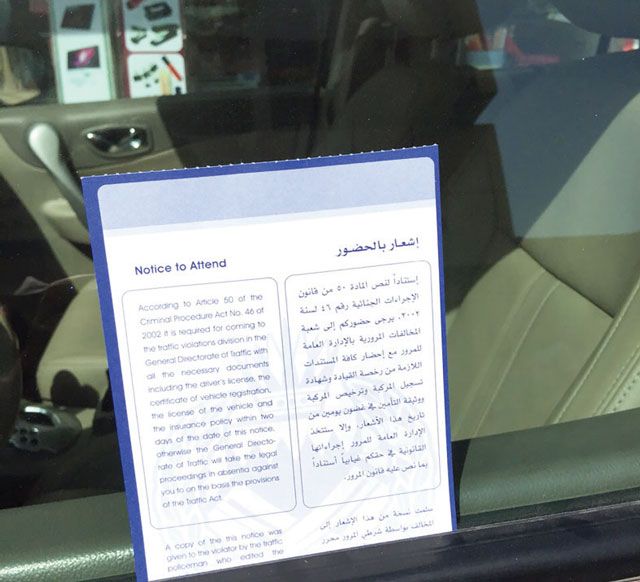 Notice to Attend
According to Article 50 of the
Criminal Procedure Act No. 46 of
2002 it is required for coming to
the traffic violations division in the
General Directorate of Traffic with
all the necessary documents
including the driver's license, the
certificate of vehicle regstration,
the license of the vehicle and
the insurance policy within two
days of the date of this notice,
otherwise the General Directo-
rate of Traffic will take the legal
proceedings in absentia against
you to on the basis the provisions
of the Traffic Act.
A copy of the this notice was
given to the violator by the traffic
policeman who edited the
إشعار بالحضور
إستناداً لنص المادة ٥٠ من قانون
الإجراءات الجنائية رقم ٤٦ لسنة
٢٠٠٢، يرجى حضوركم إلى شعبة
المخالفات المرورية بالإدارة العامة
للمرور مع إحضار كافة المستندات
اللازمة من رخصة القيادة وشهادة
تسجيل المركبة وترخيص المركبة
ووثيقة التأمين في غضون يومين من
تاريخ هذا الأشعار، وإلا ستتخذ
الإدارة العامة للمرور إجراءاتها
القانونية في حقكم غيابياً أستناداً
بما نص عليه قانون المرور.
سلمت نسخة من هذا الإشعار إلى
المخالف بواسطة شرطي المرور محرر